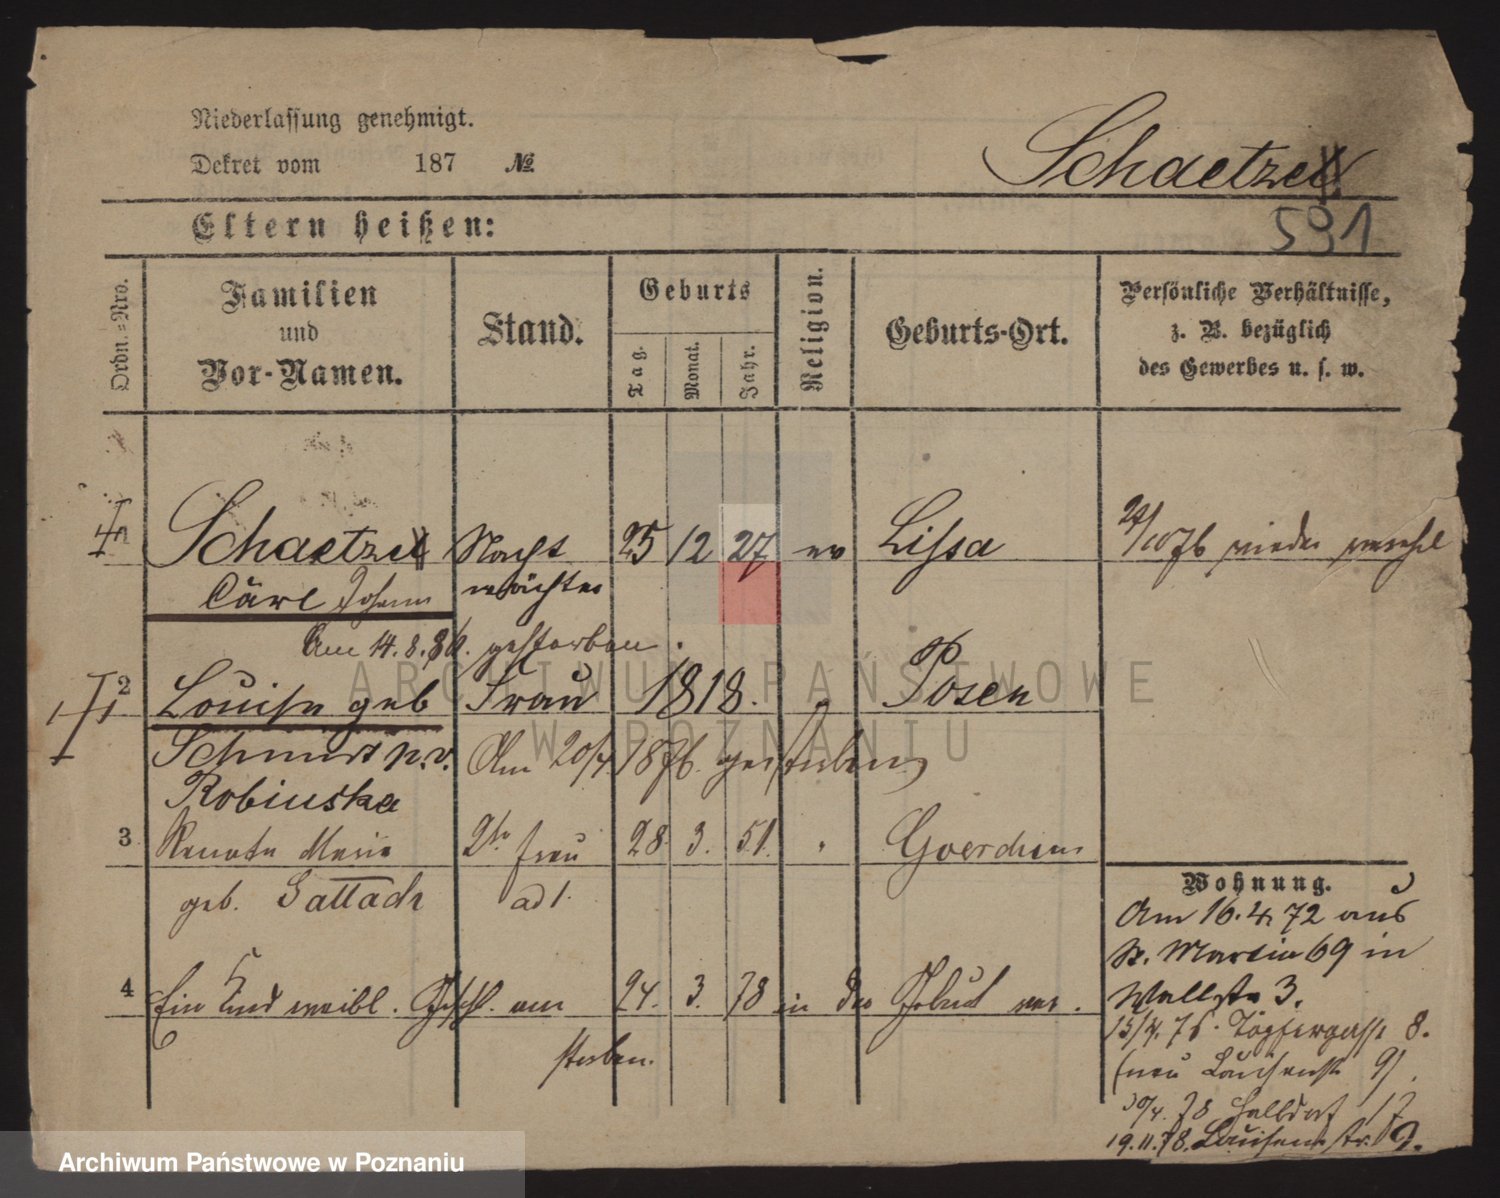 Niederlassung genehmigt.
Dekret vom 187 №
Schaetzel
591
Eltern heißen:
Ordn.-Nro.
Familien
und
Vor-Namen.
Stand.
Geburts
Tag.
Monat.
Jahr.
Religion.
Geburts-Ort.
Persönliche Verhältnisse,
z. B. bezüglich
des Gewerbes u. s. w.
1 Schaetzel Nacht 25 12 27 ev Lissa 24/10 76 wieder verehel
Carl Johann wächter
Am 14.8.86. gestorben.
2 Louise geb Frau 1818. " Posen
Schmidt p.v. Am 20/4 1876. gestorben
Robinska
3 Renate Marie 2te Frau 28. 3. 51. " Goerchen
geb. Gattach ad 1.
4 Ein Kind weibl. Geschl. am 24. 3. 78 in der Geburt ver.
storben.
Wohnung.
Am 16.4.72 aus
St. Martin 69 in
Wallstr 3.
15/4.76. Töpfergasse 8.
(neu Louisenstr 9)
78 Halbdorf 17
19.11.78. Louisenstr. 9.
ARCHIWUM PAŃSTWOWE
W POZNANIU
Archiwum Państwowe w Poznaniu